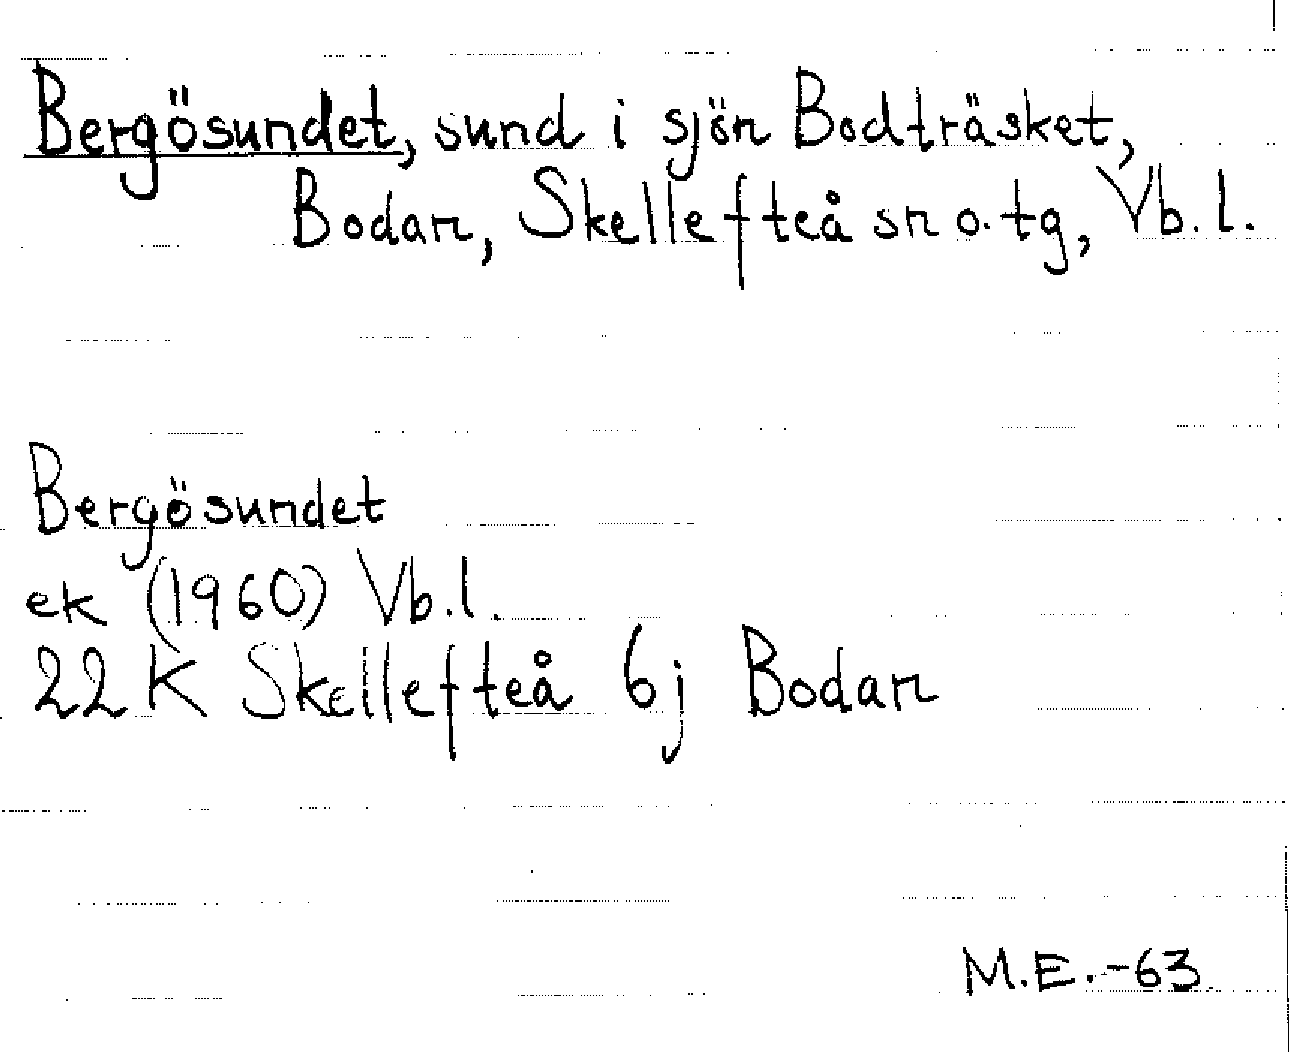 Bergösundet, sund i sjön Bodträsket,
Bodan, Skellefteå sn o. tg, Vb. l.
Bergösundet
ek (1960) Vb. l.
22 K Skellefteå 6j Bodan
M.E. -63